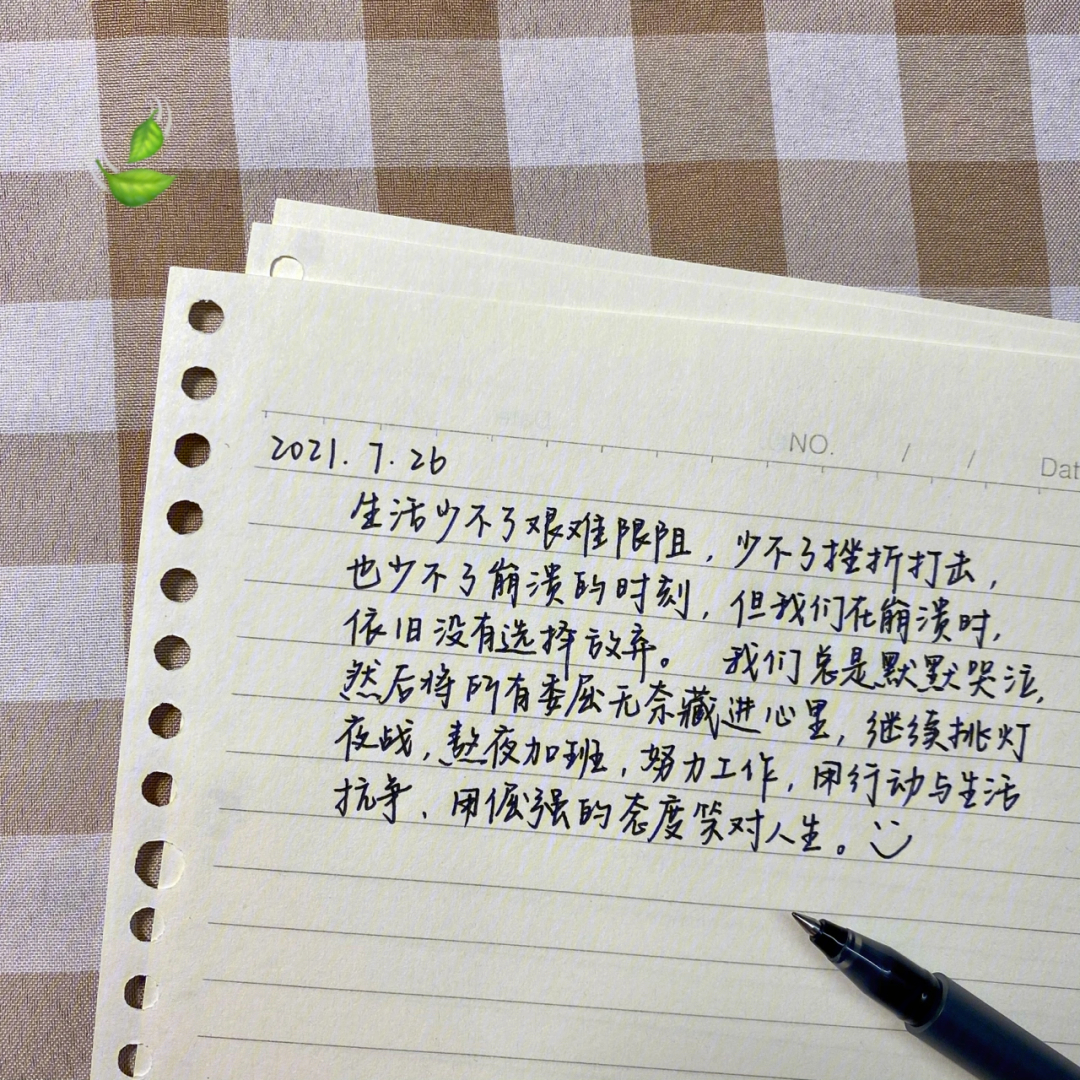 NO.
/ /
Dat
2021.7.26
生活少不了艰难限阻，少不了挫折打击，
也少不了崩溃的时刻，但我们在崩溃时，
依旧没有选择放弃。 我们总是默默哭泣，
然后将所有委屈无奈藏进心里，继续挑灯
夜战，熬夜加班，努力工作，用行动与生活
抗争、用倔强的态度笑对人生。